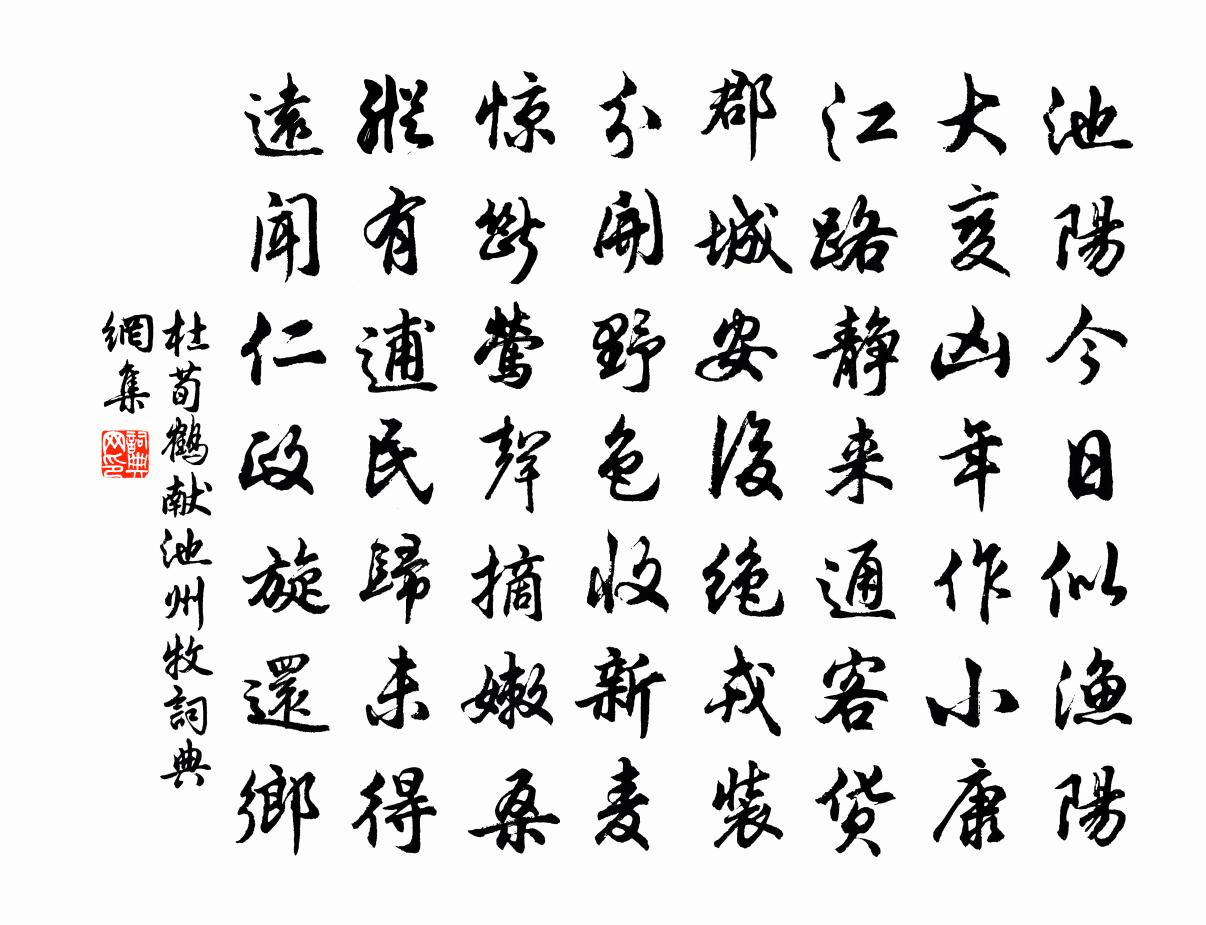 池陽今日似漁陽
大变凶年作小康
江路静来通客货
郡城安後绝戎装
分開野色收新麦
惊断鶯聲摘嫩桑
縱有逋民歸未得
遠聞仁政旋還鄉
杜荀鶴献池州牧詞典
網集
詞典网印